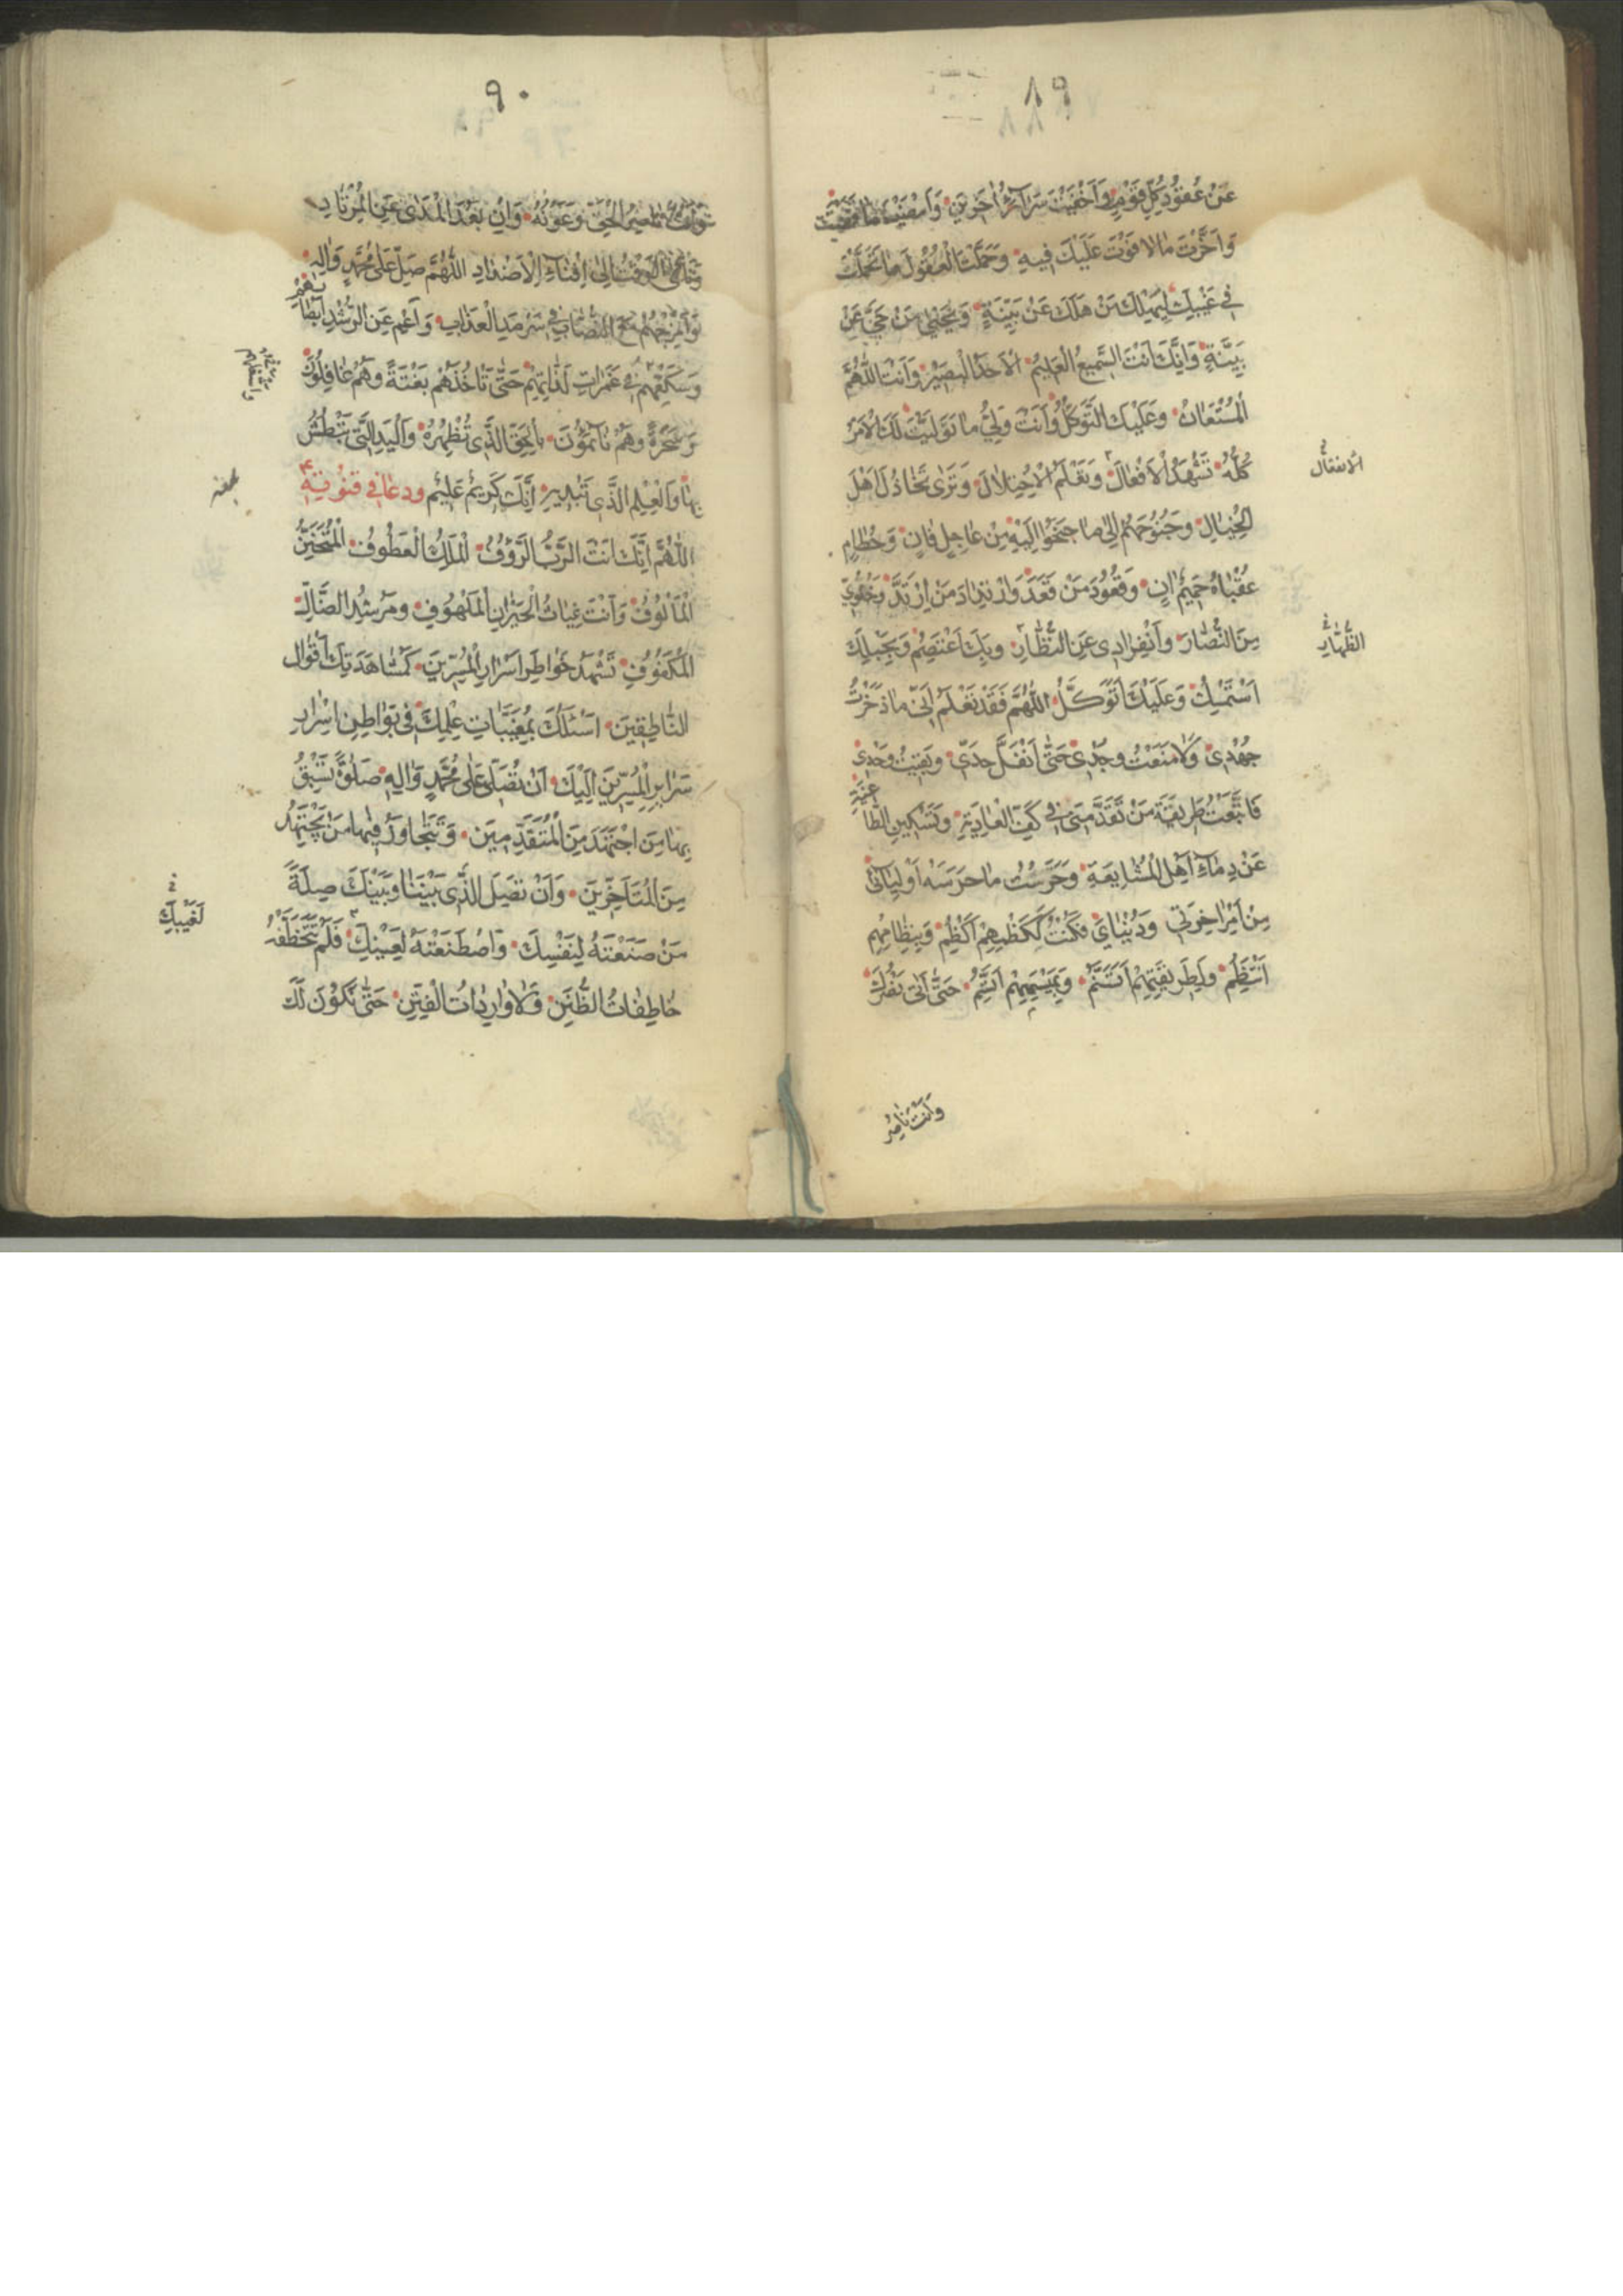 ٨٩
عَنْ عُقُودِ كُلِّ قَوْمٍ وَاَخْفَيْتَ سَرَآئِرَ اُخَرِينَ وَاَمْضَيْتَ مَا قَضَيْتَ
وَاَخَّرْتَ مَا لَا فَوْتَ عَلَيْكَ فِيهِ وَحَمَّلْتَ الْعُقُولَ مَا تَحَمَّلَتْ
فِي غَيْبِكَ لِيَهْلِكَ مَنْ هَلَكَ عَنْ بَيِّنَةٍ وَيَحْيٰى مَنْ حَيَّ عَنْ
بَيِّنَةٍ وَاِنَّكَ اَنْتَ السَّمِيعُ الْعَلِيمُ الْاَحَدُ الْبَصِيرُ وَاَنْتَ اللّٰهُمَّ
الْمُسْتَعَانُ وَعَلَيْكَ التَّوَكُّلُ وَاَنْتَ وَلِيُّ مَا تَوَلَّيْتَ لَكَ الْاَمْرُ
كُلُّهُ تَشْهَدُ الْاَفْعَالَ وَتَعْلَمُ الْاِخْتِلَالَ وَتَرٰى تَخَاذُلَ اَهْلِ
الْخَبَالِ وَجُنُوحَهُمْ اِلٰى مَا جَنَحُوا اِلَيْهِ مِنْ عَاجِلٍ فَانٍ وَحُطَامٍ
عُقْبَاهُ حَمِيمٌ اٰنٍ وَقُعُودَ مَنْ قَعَدَ وَارْتِدَادَ مَنِ ارْتَدَّ وَخُلُوِّي
مِنَ النُّصَّارِ وَاَنْفِرَادِي عَنِ النُّظَّارِ وَبِكَ اَعْتَصِمُ وَبِحَبْلِكَ
اَسْتَمْسِكُ وَعَلَيْكَ اَتَوَكَّلُ اللّٰهُمَّ فَقَدْ تَعْلَمُ اَنّي مَا ذَخَرْتُ
جُهْدِي وَلَا مَنَعْتُ وُجْدِي حَتّٰى اَنْفَلَّ حَدِّي وَبَقِيتُ وَحْدِي
فَاتَّبَعْتُ طَرِيقَةَ مَنْ تَقَدَّمَنِي فِي كَفِّ الْعَادِيَةِ وَتَسْكِينِ الطَّاغِيَةِ
عَنْ دِمَاءِ اَهْلِ الْمُشَايِعَةِ وَحَرَسْتُ مَا حَرَسَهُ اَوْلِيَائِي
مِنْ اَمْرِ اٰخِرَتِي وَدُنْيَايَ فَكُنْتُ لِكَظْمِهِمْ اَكْظِمُ وَبِنِظَامِهِمْ
اَنْتَظِمُ وَلِطَرِيقَتِهِمْ اَتَسَنَّمُ وَبِمِيسَمِهِمْ اَتَّسِمُ حَتّٰى اَتٰى نَصْرُكَ
وَاَنْتَ نَاصِرُ
الْانفعال
الظهار
٩٠
نَاصِرُ الْحَقِّ وَعَوْنُهُ وَاِنْ بَعُدَ الْمَدٰى عَنِ الْمُرْتَادِ
وَنَأَى الْوَقْتُ اِلٰى اِفْنَاءِ الْاَضْدَادِ اللّٰهُمَّ صَلِّ عَلٰى مُحَمَّدٍ وَاٰلِهِ
وَامْزُجْهُمْ مَعَ النُّصَّابِ فِي سَرْمَدِ الْعَذَابِ وَاَعْمِ عَنِ الرُّشْدِ اَبْصَارَهُمْ
وَسَكِّعْهُمْ فِي غَمَرَاتِ لَذَّاتِهِمْ حَتّٰى تَأْخُذَهُمْ بَغْتَةً وَهُمْ غَافِلُونَ
وَسُحْرَةً وَهُمْ نَائِمُونَ بِالْحَقِّ الَّذِي تُظْهِرُهُ وَالْيَدِ الَّتِي تَبْطِشُ
بِهَا وَالْعِلْمِ الَّذِي تُبْدِيهِ اِنَّكَ كَرِيمٌ عَلِيمٌ ودعا في قنوته ع
اللّٰهُمَّ اِنَّكَ اَنْتَ الرَّبُّ الرَّؤُفُ الْمَلِكُ الْعَطُوفُ الْمُتَحَنِّنُ
الْمَأْلُوفُ وَاَنْتَ غِيَاثُ الْحَيْرَانِ الْمَلْهُوفِ وَمُرْشِدُ الضَّالِّ
الْمَكْفُوفِ تَشْهَدُ خَوَاطِرَ اَسْرَارِ الْمُسِرِّينَ كَمُشَاهَدَتِكَ اَقْوَالَ
النَّاطِقِينَ اَسْئَلُكَ بِمُغَيَّبَاتِ عِلْمِكَ فِي بَوَاطِنِ اَسْرَارِ
سَرَايِرِ الْمُسِرِّينَ اِلَيْكَ اَنْ تُصَلِّيَ عَلٰى مُحَمَّدٍ وَاٰلِهِ صَلٰوةً نَسْبِقُ
بِهَا مَنِ اجْتَهَدَ مِنَ الْمُتَقَدِّمِينَ وَنَتَجَاوَزُ فِيهَا مَنْ يَجْتَهِدُ
مِنَ الْمُتَاَخِّرِينَ وَاَنْ تَصِلَ الَّذِي بَيْنَنَا وَبَيْنَكَ صِلَةَ
مَنْ صَنَعْتَهُ لِنَفْسِكَ وَاصْطَنَعْتَهُ لِعَيْنِكَ فَلَمْ تَتَخَطَّفْهُ
خَاطِفَاتُ الظُّنَنِ وَلَا وَارِدَاتُ الْفِتَنِ حَتّٰى نَكُونَ لَكَ
لَغَيْبِكَ